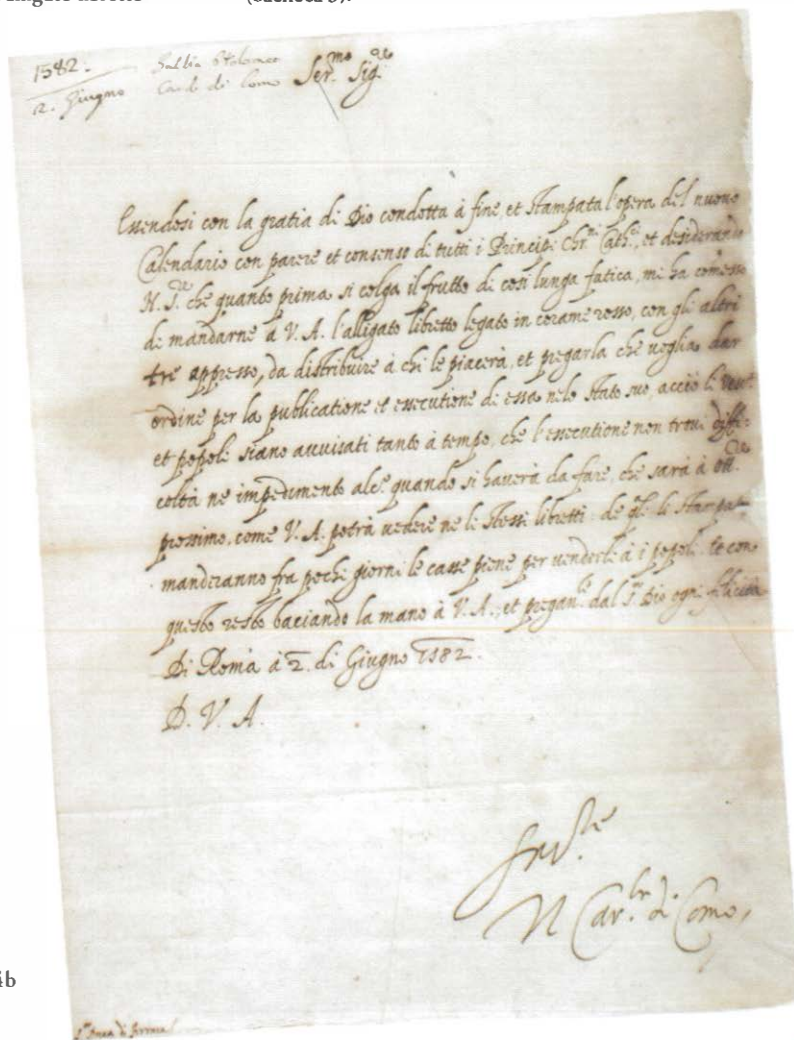 (Bacheca 3).
1582.
2. Giugno
Card di Como
Ser.mo Sig.re
Essendosi con la gratia di Dio condotta à fine, et stampata l'opera del nuovo
Calendario con parere et consenso di tutti i Principi Chr.ni Cath.ci, et desiderando
N. S.re che quanto prima si colga il frutto di così lunga fatica, mi ha comesso
di mandarne à V. A. l'alligato libretto legato in corame rosso, con gli altri
tre appresso, da distribuire à chi le piacerà, et pregarla che voglia dar
ordine per la publicatione et essecutione di essa nelo Stato suo, acciò li
et popoli siano avvisati tanto à tempo, che l'essecutione non trovi diffi=
coltà ne impedimento alc.o quando si haverà da fare, che sarà à Ott.re
prossimo, come V. A. potrà vedere ne li stessi libretti: de gli li
manderanno fra pochi giorni le casse piene per venderli à i popoli. Et con
questo resto baciando la mano à V. A., et pregan.le dal S.r Dio ogni felicità
Di Roma à 2. di Giugno 1582.
D. V. A.
Ser.re
Il Car.le di Como
S.r Duca di Ferrara
4b